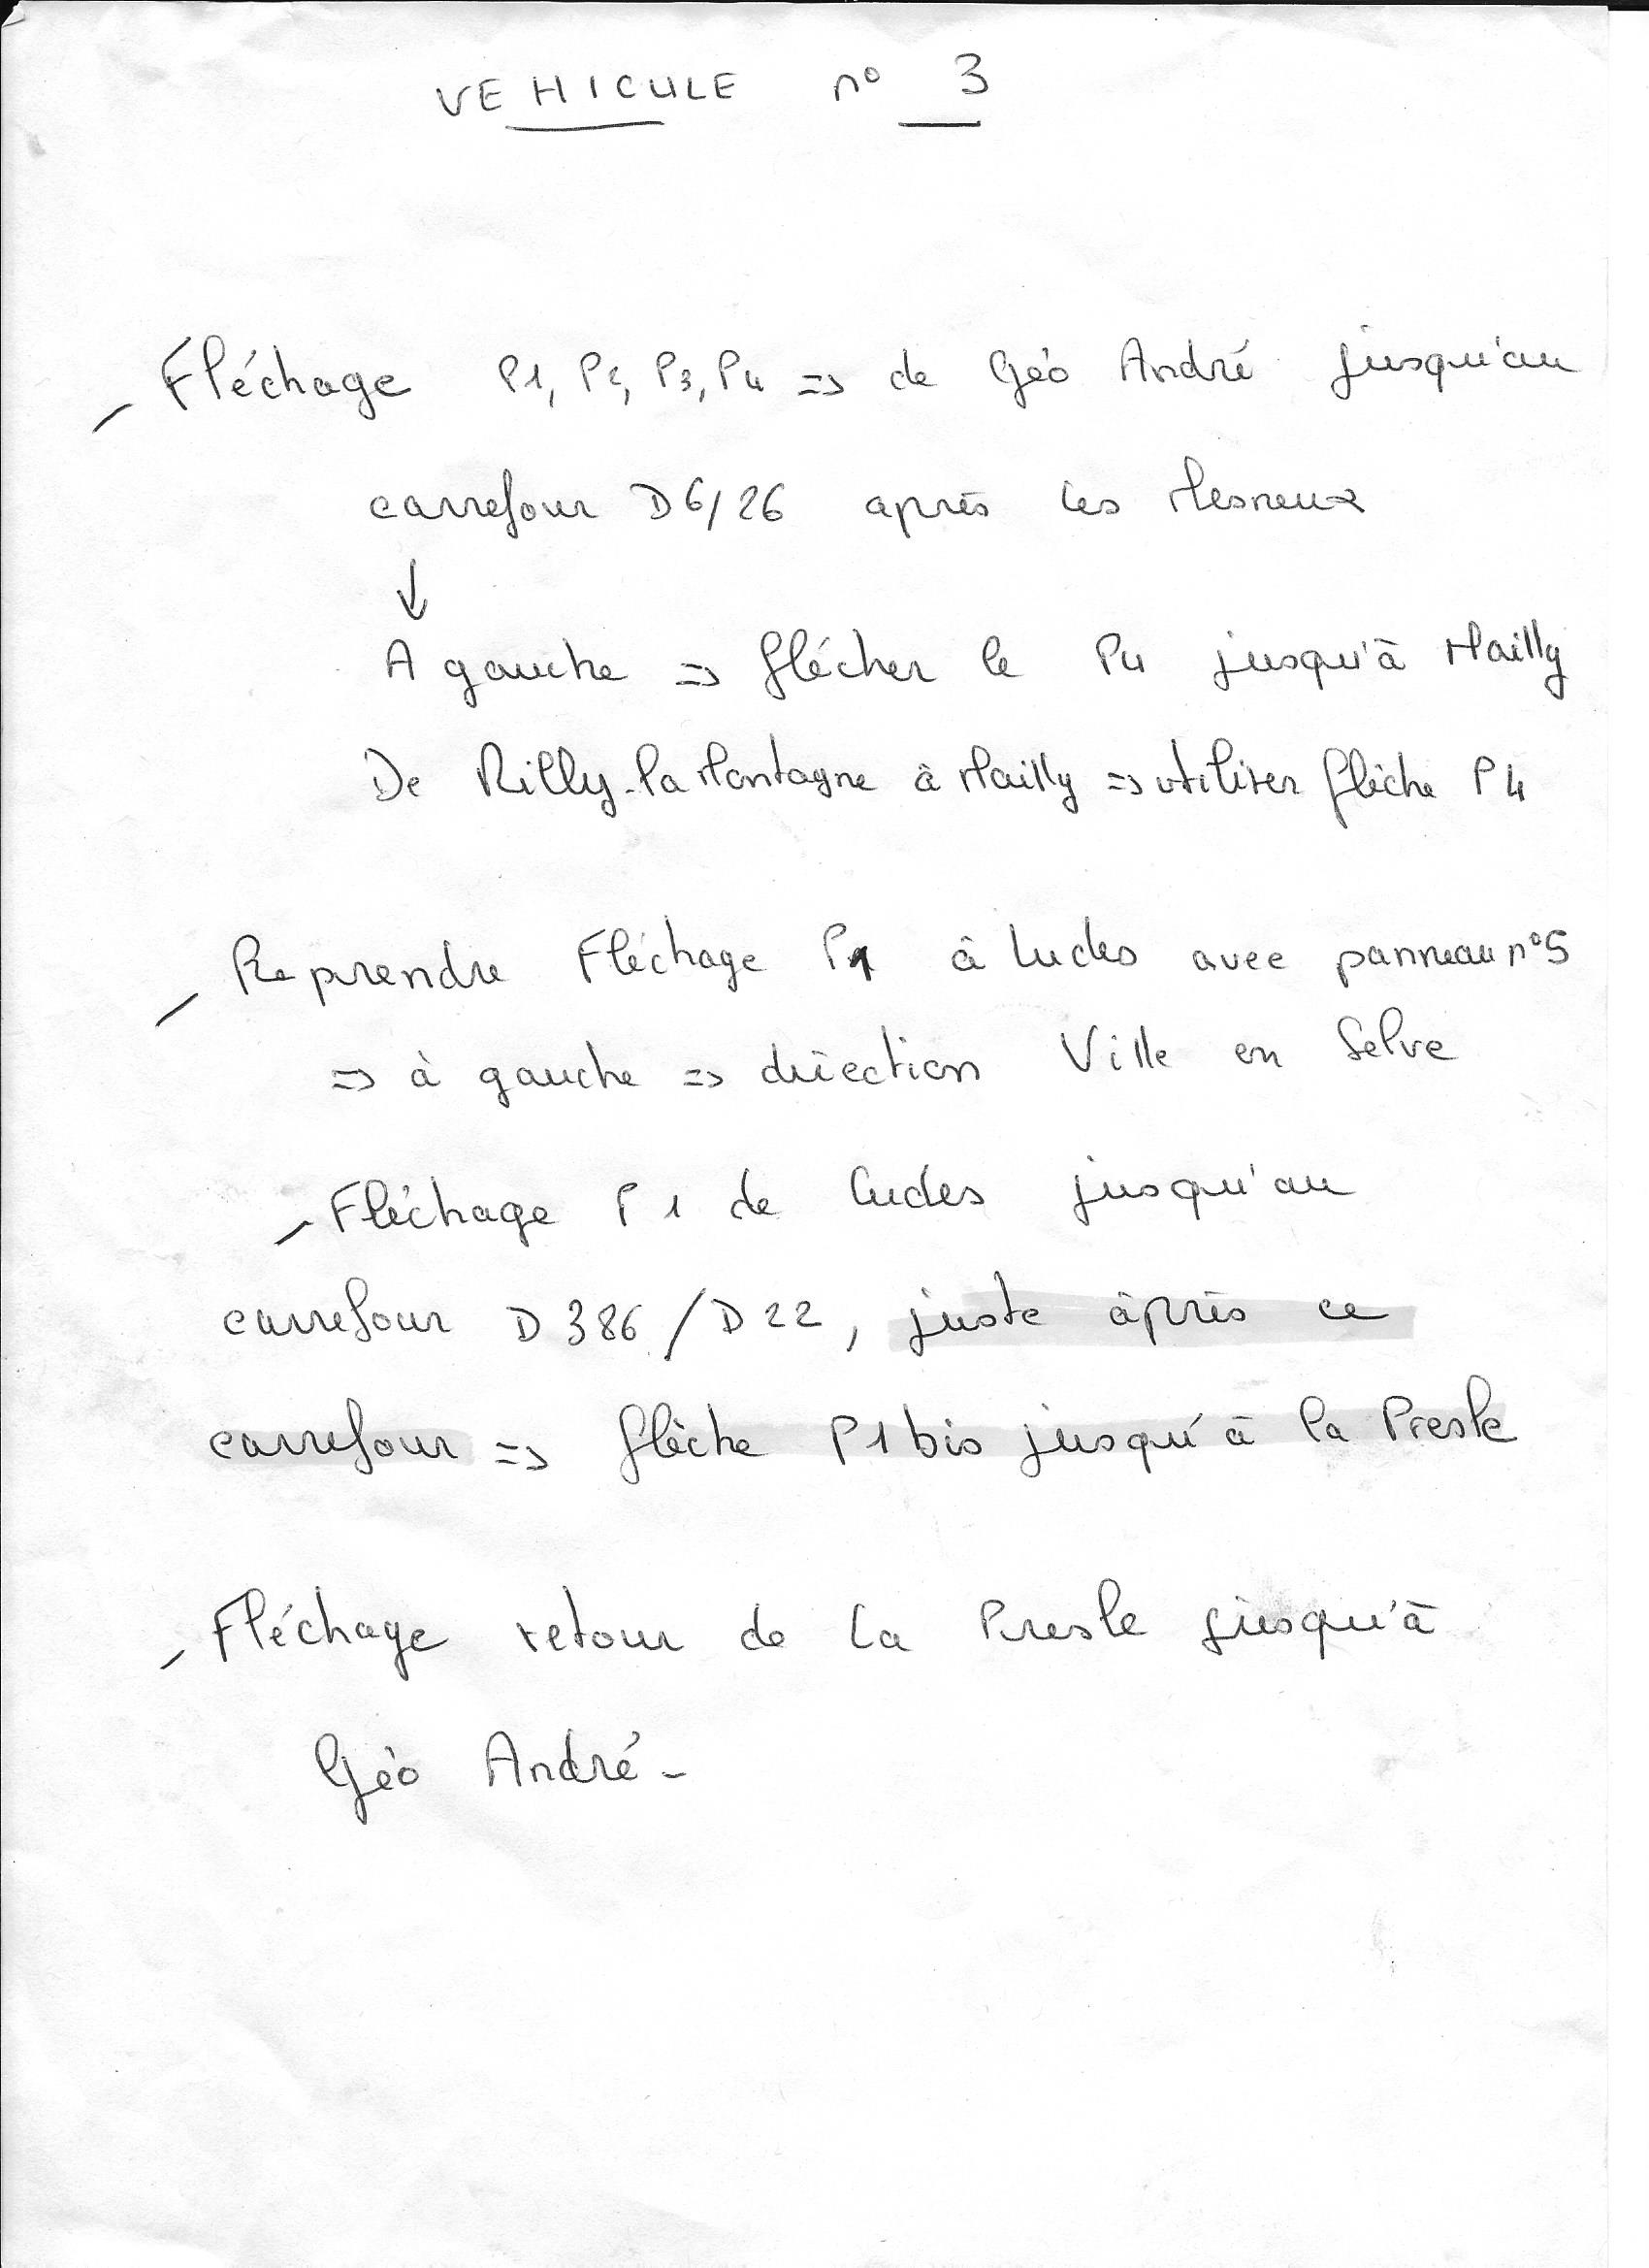 VEHICULE n° 3
- Fléchage P1, P2, P3, P4 => de Géo André jusqu'au
carrefour D6/26 après les Mesneux
↓
A gauche => flécher le P4 jusqu'à Mailly
De Rilly-la Montagne à Mailly => utiliser flèche P4
- Reprendre Fléchage P1 à Ludes avec panneau n°5
=> à gauche => direction Ville en Selve
- Fléchage P1 de Ludes jusqu'au
carrefour D386/D22, juste après ce
carrefour => flèche P1bis jusqu'à la Presle
- Fléchage retour de la Presle jusqu'à
Géo André -